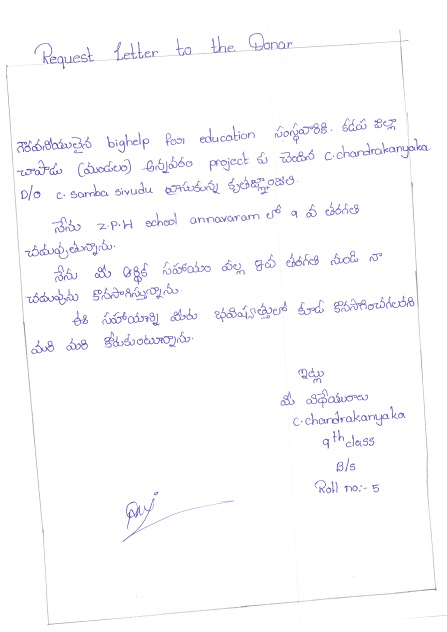 Request Letter to the Donar
గౌరవనీయులైన bighelp for education సంస్థవారికి. కడప జిల్లా
చాపాడు (మండలం) అన్నవరం project కు చెందిన c.chandrakanyaka
D/o c. samba sivudu వ్రాసుకున్న కృతజ్ఞతాంజలి.
నేను Z.P.H school annavaram లో 9 వ తరగతి
చదువుతున్నాను.
నేను మీ ఆర్థిక సహాయం వల్ల వ తరగతి నుండి నా
చదువును కొనసాగిస్తున్నాను.
ఈ సహాయాన్ని మీరు భవిష్యత్తులో కూడ కొనసాగించగలరని
మరి మరి కోరుకుంటున్నాను.
ఇట్లు
మీ విధేయురాలు
C.chandrakanyaka
9th class
B/s
Roll no:- 5